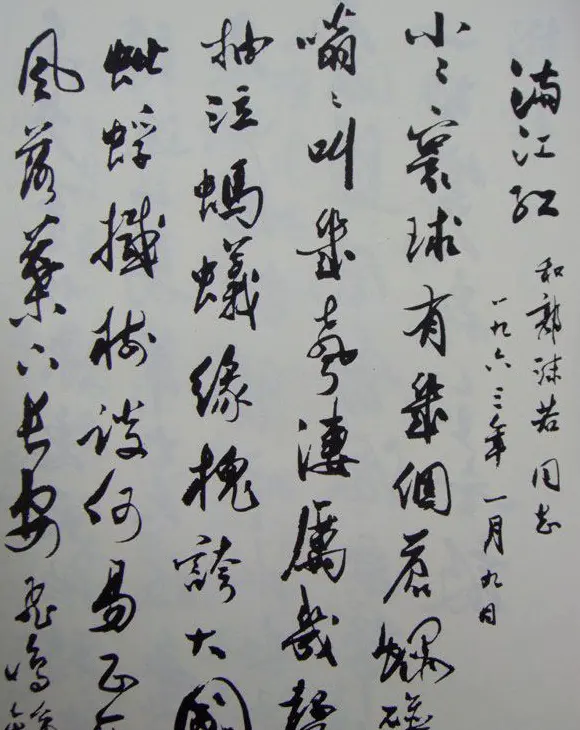 滿江紅
和郭沫若同志
一九六三年一月九日
小〻寰球有幾個蒼蠅碰
嗡〻叫幾聲淒厲幾聲
抽泣螞蟻緣槐誇大國
蚍蜉撼樹談何易正西
風落葉下長安飛鳴鏑